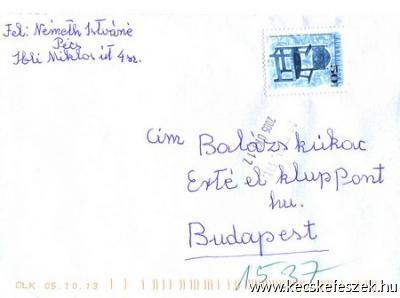 Fel: Németh Istváné
Pécs
Ibli Miklos út 4sz.
Cim Balázs kukac
Erté el klup Pont
hu.
Budapest
1537
OLK 05.10.13
www.kecskefeszek.hu